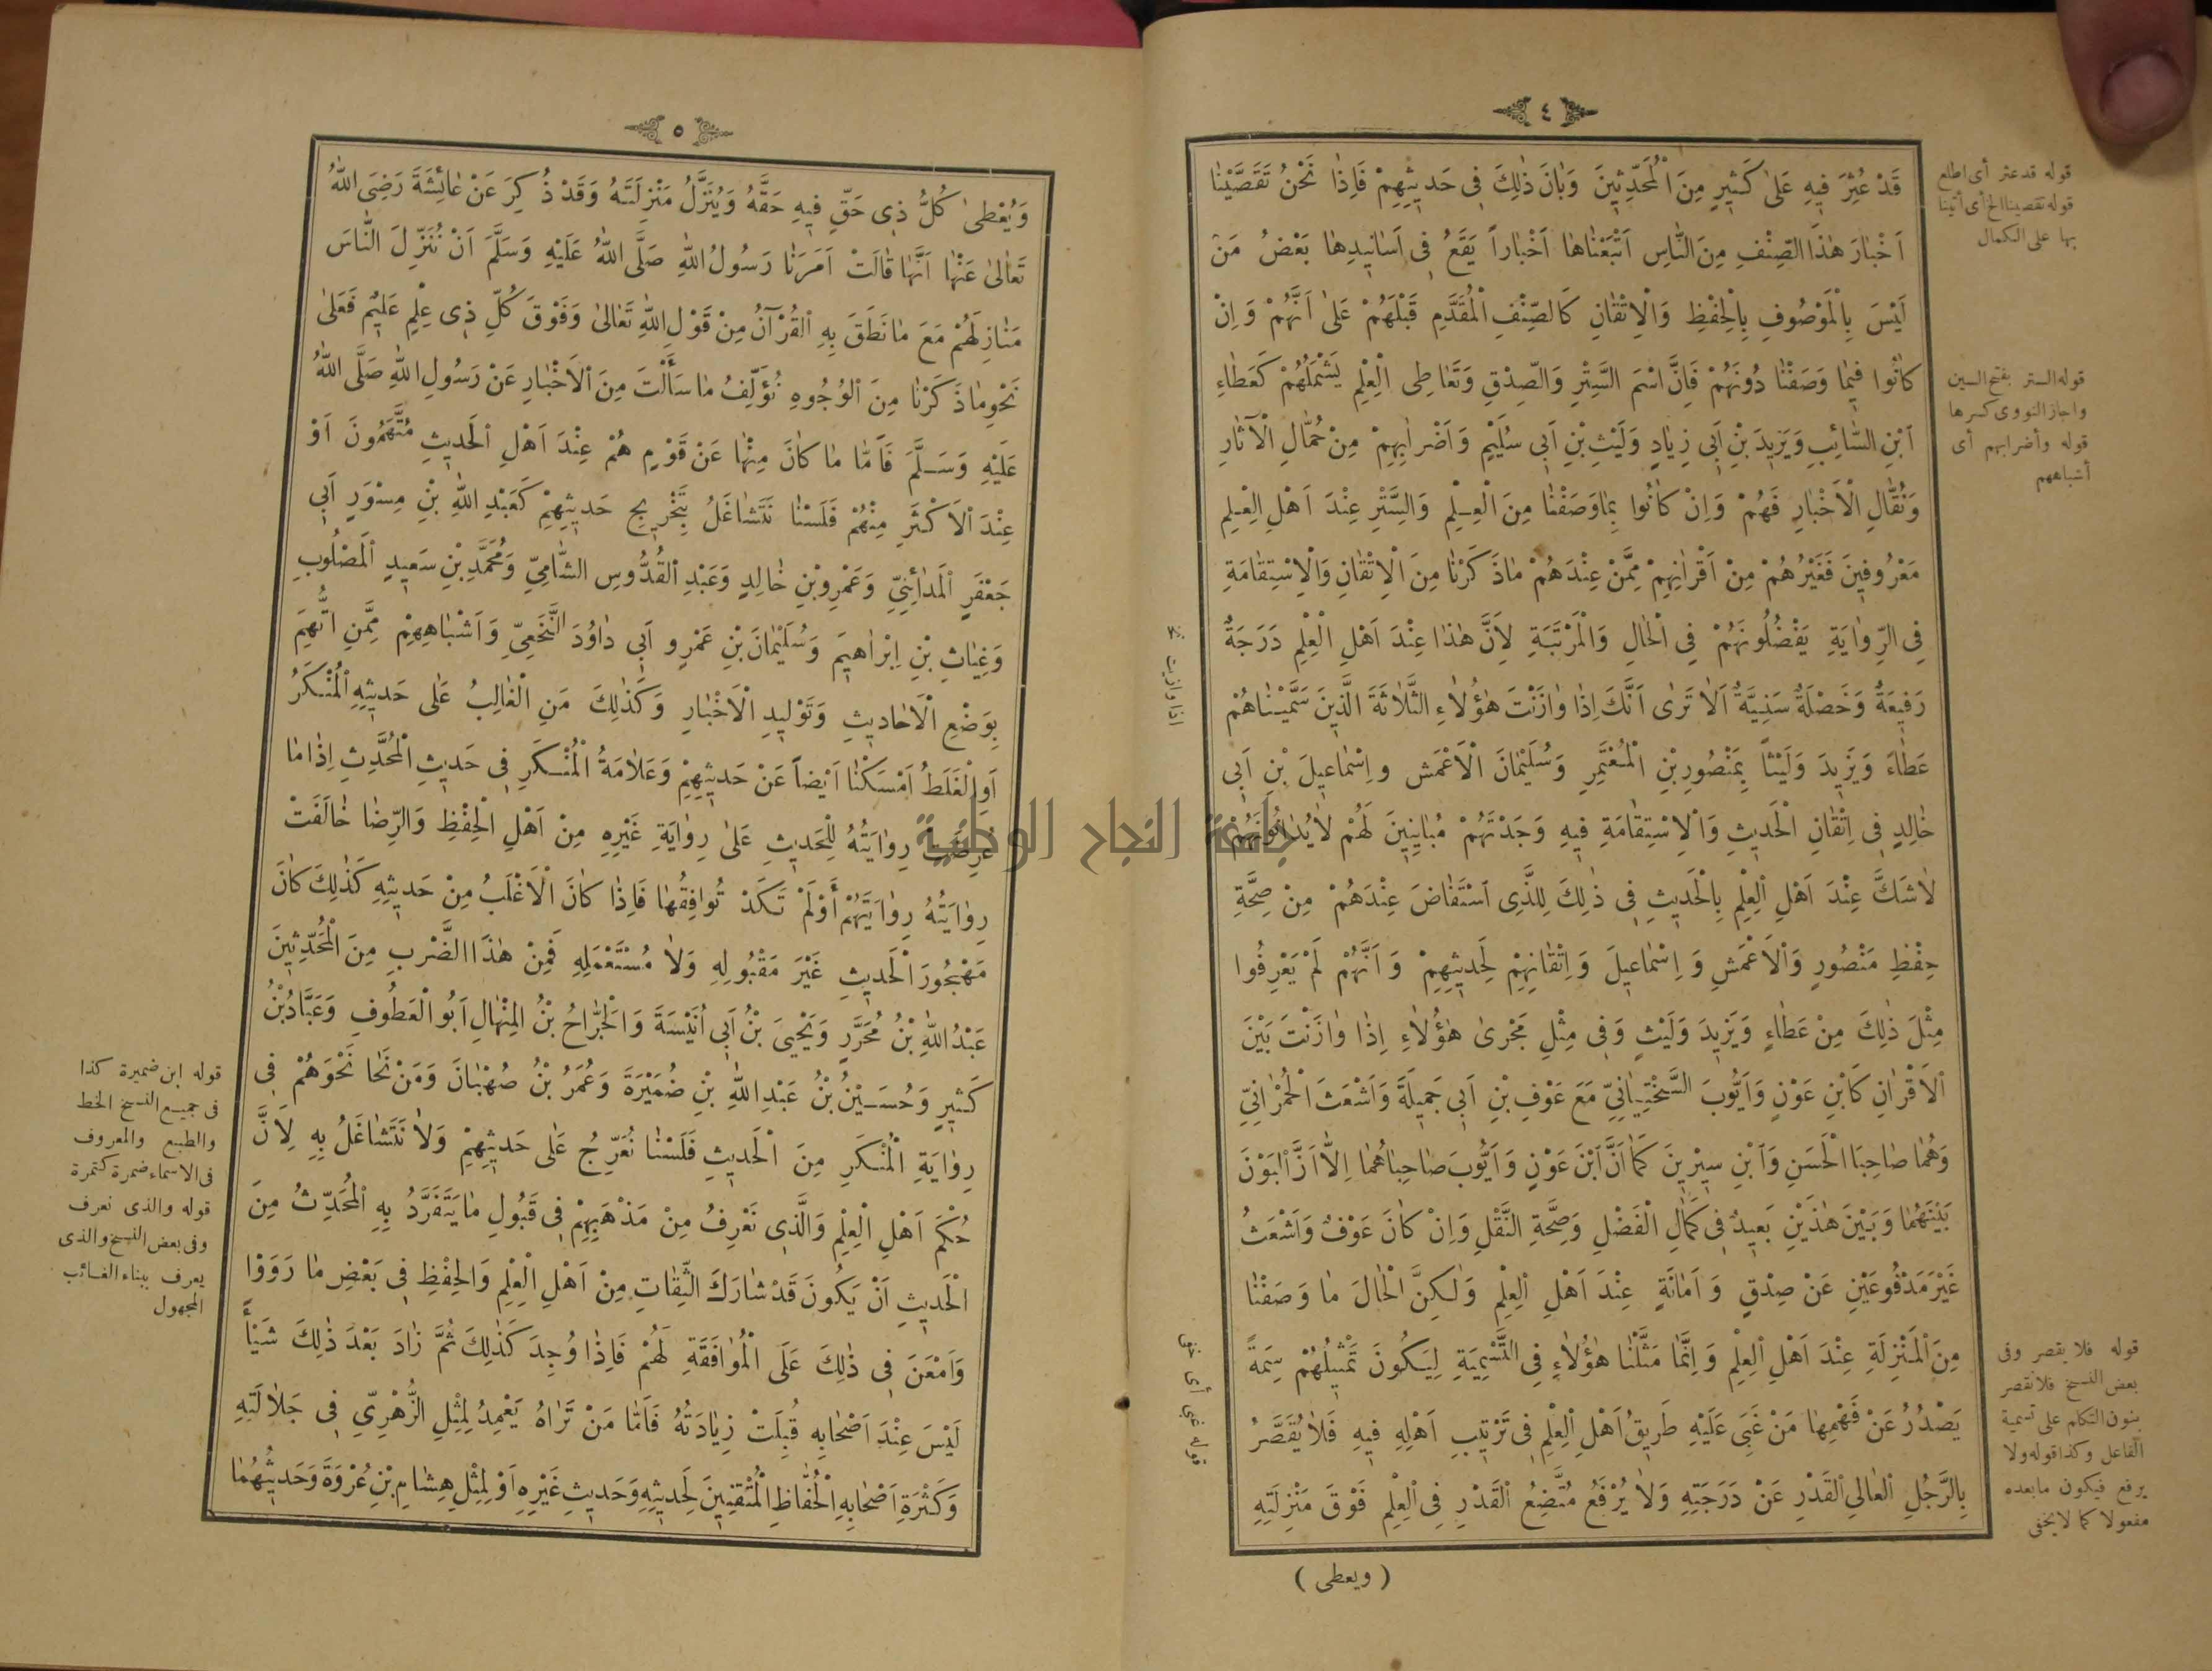 ٤
قَدْ عُثِرَ فِيهِ عَلىٰ كَثِيرٍ مِنَ الْمُحَدِّثِينَ وَبٰانَ ذٰلِكَ فِى حَدِيثِهِمْ فَاِذٰا نَحْنُ تَقَصَّيْنٰا
اَخْبٰارَ هٰذَا الصِّنْفِ مِنَ النّٰاسِ اَتْبَعْنٰاهٰا اَخْبٰاراً يَقَعُ فِى اَسٰانِيدِهٰا بَعْضُ مَنْ
لَيْسَ بِالْمَوْصُوفِ بِالْحِفْظِ وَالْاِتْقٰانِ كَالصِّنْفِ الْمُقَدَّمِ قَبْلَهُمْ عَلىٰ اَنَّهُمْ وَ اِنْ
كٰانُوا فِيمٰا وَصَفْنٰا دُونَهُمْ فَاِنَّ اسْمَ السَّتْرِ وَالصِّدْقِ وَتَعٰاطِى الْعِلْمِ يَشْمَلُهُمْ كَعَطٰاءِ
ابْنِ السّٰائِبِ وَيَزِيدَ بْنِ اَبِى زِيٰادٍ وَلَيْثِ بْنِ اَبِى سُلَيْمٍ وَ اَضْرٰابِهِمْ مِنْ حُمّٰالِ الْآثٰارِ
وَنُقّٰالِ الْاَخْبٰارِ فَهُمْ وَاِنْ كٰانُوا بِمٰا وَصَفْنٰا مِنَ الْعِلْمِ وَالسَّتْرِ عِنْدَ اَهْلِ الْعِلْمِ
مَعْرُوفِينَ فَغَيْرُهُمْ مِنْ اَقْرٰانِهِمْ مِمَّنْ عِنْدَهُمْ مٰا ذَكَرْنٰا مِنَ الْاِتْقٰانِ وَالْاِسْتِقٰامَةِ
فِى الرِّوٰايَةِ يَفْضُلُونَهُمْ فِى الْحٰالِ وَالْمَرْتَبَةِ لِاَنَّ هٰذٰا عِنْدَ اَهْلِ الْعِلْمِ دَرَجَةٌ
رَفِيعَةٌ وَخَصْلَةٌ سَنِيَّةٌ اَلاٰ تَرٰى اَنَّكَ اِذٰا وٰازَنْتَ هٰؤُلاٰءِ الثَّلاٰثَةَ الَّذِينَ سَمَّيْنٰاهُمْ
عَطٰاءً وَيَزِيدَ وَلَيْثاً بِمَنْصُورِ بْنِ الْمُعْتَمِرِ وَسُلَيْمٰانَ الْاَعْمَشِ وَاِسْمٰاعِيلَ بْنِ اَبِى
خٰالِدٍ فِى اِتْقٰانِ الْحَدِيثِ وَالْاِسْتِقٰامَةِ فِيهِ وَجَدْتَهُمْ مُبٰايِنِينَ لَهُمْ لاٰ يُدٰانُونَهُمْ
لاٰشَكَّ عِنْدَ اَهْلِ الْعِلْمِ بِالْحَدِيثِ فِى ذٰلِكَ لِلَّذِى اسْتَفٰاضَ عِنْدَهُمْ مِنْ صِحَّةِ
حِفْظِ مَنْصُورٍ وَالْاَعْمَشِ وَ اِسْمٰاعِيلَ وَ اِتْقٰانِهِمْ لِحَدِيثِهِمْ وَ اَنَّهُمْ لَمْ يَعْرِفُوا
مِثْلَ ذٰلِكَ مِنْ عَطٰاءٍ وَيَزِيدَ وَلَيْثٍ وَفِى مِثْلِ مَجْرىٰ هٰؤُلاٰءِ اِذٰا وٰازَنْتَ بَيْنَ
الْاَقْرٰانِ كَابْنِ عَوْنٍ وَاَيُّوبَ السَّخْتِيٰانِىِّ مَعَ عَوْفِ بْنِ اَبِى جَمِيلَةَ وَاَشْعَثَ الْحُمْرٰانِىِّ
وَهُمٰا صٰاحِبَا الْحَسَنِ وَابْنِ سِيرِينَ كَمٰا اَنَّ ابْنَ عَوْنٍ وَاَيُّوبَ صٰاحِبٰاهُمٰا اِلاّٰ اَنَّ الْبَوْنَ
بَيْنَهُمٰا وَبَيْنَ هٰذَيْنِ بَعِيدٌ فِى كَمٰالِ الْفَضْلِ وَصِحَّةِ النَّقْلِ وَاِنْ كٰانَ عَوْفٌ وَاَشْعَثُ
غَيْرَ مَدْفُوعَيْنِ عَنْ صِدْقٍ وَ اَمٰانَةٍ عِنْدَ اَهْلِ الْعِلْمِ وَلٰكِنَّ الْحٰالَ مٰا وَصَفْنٰا
مِنَ الْمَنْزِلَةِ عِنْدَ اَهْلِ الْعِلْمِ وَ اِنَّمٰا مَثَّلْنٰا هٰؤُلاٰءِ فِى التَّسْمِيَةِ لِيَكُونَ تَمْثِيلُهُمْ سِمَةً
يَصْدُرُ عَنْ فَهْمِهٰا مَنْ غَبِىَ عَلَيْهِ طَرِيقُ اَهْلِ الْعِلْمِ فِى تَرْتِيبِ اَهْلِهِ فِيهِ فَلاٰ يُقَصَّرُ
بِالرَّجُلِ الْعٰالِى الْقَدْرِ عَنْ دَرَجَتِهِ وَلاٰ يُرْفَعُ مُتَّضِعُ الْقَدْرِ فِى الْعِلْمِ فَوْقَ مَنْزِلَتِهِ
( ويعطى )
قوله قد عثر أى اطلع
قوله تقصينا الخ أى أتينا
بها على الكمال
قوله الستر بفتح السين
واجاز النووى كسرها
قوله وأضرابهم أى
أشباههم
اذا وازيت نخ
قوله فلا يقصر وفى
بعض النسخ فلا نقصر
بنون التكلم على تسمية
الفاعل وكذا قوله ولا
يرفع فيكون مابعده
مفعولا كما لا يخفى
قوله غبى أى خفى
٥
وَيُعْطىٰ كُلُّ ذِى حَقٍّ فِيهِ حَقَّهُ وَيُنَزَّلُ مَنْزِلَتَهُ وَقَدْ ذُكِرَ عَنْ عٰائِشَةَ رَضِىَ اللّٰهُ
تَعٰالىٰ عَنْهٰا اَنَّهٰا قٰالَتْ اَمَرَنٰا رَسُولُ اللّٰهِ صَلَّى اللّٰهُ عَلَيْهِ وَسَلَّمَ اَنْ نُنَزِّلَ النّٰاسَ
مَنٰازِلَهُمْ مَعَ مٰا نَطَقَ بِهِ الْقُرْآنُ مِنْ قَوْلِ اللّٰهِ تَعٰالىٰ وَفَوْقَ كُلِّ ذِى عِلْمٍ عَلِيمٌ فَعَلىٰ
نَحْوِ مٰا ذَكَرْنٰا مِنَ الْوُجُوهِ نُؤَلِّفُ مٰا سَأَلْتَ مِنَ الْاَخْبٰارِ عَنْ رَسُولِ اللّٰهِ صَلَّى اللّٰهُ
عَلَيْهِ وَسَلَّمَ فَاَمّٰا مٰا كٰانَ مِنْهٰا عَنْ قَوْمٍ هُمْ عِنْدَ اَهْلِ الْحَدِيثِ مُتَّهَمُونَ اَوْ
عِنْدَ الْاَكْثَرِ مِنْهُمْ فَلَسْنٰا نَتَشٰاغَلُ بِتَخْرِيجِ حَدِيثِهِمْ كَعَبْدِ اللّٰهِ بْنِ مِسْوَرٍ اَبِى
جَعْفَرٍ الْمَدٰائِنِىِّ وَعَمْرِو بْنِ خٰالِدٍ وَعَبْدِ الْقُدُّوسِ الشّٰامِىِّ وَمُحَمَّدِ بْنِ سَعِيدٍ الْمَصْلُوبِ
وَغِيٰاثِ بْنِ اِبْرٰاهِيمَ وَسُلَيْمٰانَ بْنِ عَمْرٍو اَبِى دٰاوُدَ النَّخَعِىِّ وَاَشْبٰاهِهِمْ مِمَّنِ اتُّهِمَ
بِوَضْعِ الْاَحٰادِيثِ وَتَوْلِيدِ الْاَخْبٰارِ وَكَذٰلِكَ مَنِ الْغٰالِبُ عَلٰى حَدِيثِهِ الْمُنْكَرُ
اَوِ الْغَلَطُ اَمْسَكْنٰا اَيْضاً عَنْ حَدِيثِهِمْ وَعَلاٰمَةُ الْمُنْكَرِ فِى حَدِيثِ الْمُحَدِّثِ اِذٰا مٰا
عُرِضَتْ رِوٰايَتُهُ لِلْحَدِيثِ عَلىٰ رِوٰايَةِ غَيْرِهِ مِنْ اَهْلِ الْحِفْظِ وَالرِّضٰا خٰالَفَتْ
رِوٰايَتُهُ رِوٰايَتَهُمْ أَوْ لَمْ تَكَدْ تُوٰافِقُهٰا فَاِذٰا كٰانَ الْاَغْلَبُ مِنْ حَدِيثِهِ كَذٰلِكَ كٰانَ
مَهْجُورَ الْحَدِيثِ غَيْرَ مَقْبُولِهِ وَلاٰ مُسْتَعْمَلِهِ فَمِنْ هٰذَا الضَّرْبِ مِنَ الْمُحَدِّثِينَ
عَبْدُ اللّٰهِ بْنُ مُحَرَّرٍ وَيَحْيىَ بْنُ اَبِى اُنَيْسَةَ وَالْجَرّٰاحُ بْنُ الْمِنْهٰالِ اَبُو الْعَطُوفِ وَعَبَّادُ بْنُ
كَثِيرٍ وَحُسَيْنُ بْنُ عَبْدِ اللّٰهِ بْنِ ضُمَيْرَةَ وَعُمَرُ بْنُ صُهْبٰانَ وَمَنْ نَحٰا نَحْوَهُمْ فِى
رِوٰايَةِ الْمُنْكَرِ مِنَ الْحَدِيثِ فَلَسْنٰا نُعَرِّجُ عَلٰى حَدِيثِهِمْ وَلاٰ نَتَشٰاغَلُ بِهِ لِاَنَّ
حُكْمَ اَهْلِ الْعِلْمِ وَالَّذِى نَعْرِفُ مِنْ مَذْهَبِهِمْ فِى قَبُولِ مٰا يَتَفَرَّدُ بِهِ الْمُحَدِّثُ مِنَ
الْحَدِيثِ اَنْ يَكُونَ قَدْ شٰارَكَ الثِّقٰاتِ مِنْ اَهْلِ الْعِلْمِ وَالْحِفْظِ فِى بَعْضِ مٰا رَوَوْا
وَاَمْعَنَ فِى ذٰلِكَ عَلَى الْمُوٰافَقَةِ لَهُمْ فَاِذٰا وُجِدَ كَذٰلِكَ ثُمَّ زٰادَ بَعْدَ ذٰلِكَ شَيْأً
لَيْسَ عِنْدَ اَصْحٰابِهِ قُبِلَتْ زِيٰادَتُهُ فَاَمّٰا مَنْ تَرٰاهُ يَعْمِدُ لِمِثْلِ الزُّهْرِىِّ فِى جَلاٰلَتِهِ
وَكَثْرَةِ اَصْحٰابِهِ الْحُفّٰاظِ الْمُتْقِنِينَ لِحَدِيثِهِ وَحَدِيثِ غَيْرِهِ اَوْ لِمِثْلِ هِشٰامِ بْنِ عُرْوَةَ وَحَدِيثُهُمٰا
قوله ابن ضميرة كذا
فى جميع النسخ الخط
والطبع والمعروف
فى الاسماء ضمرة كتمرة
قوله والذى نعرف
وفى بعض النسخ والذى
يعرف ببناء الغائب
المجهول
جامعة النجاح الوطنية